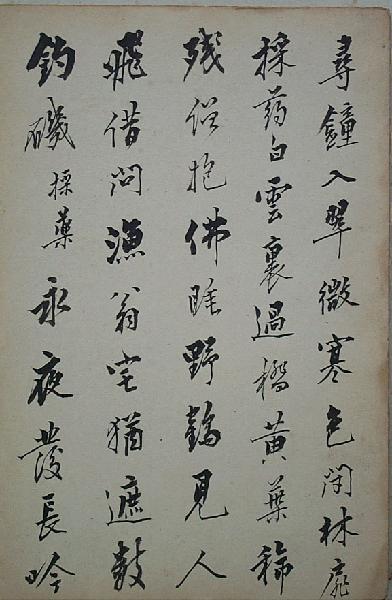 尋鐘入翠微寒色閉林扉
採药白雲裏過橋黄葉稀
残僧抱佛睡野鶴見人
飛借问漁翁宅猶遮数
钓磯採藥永夜發長吟